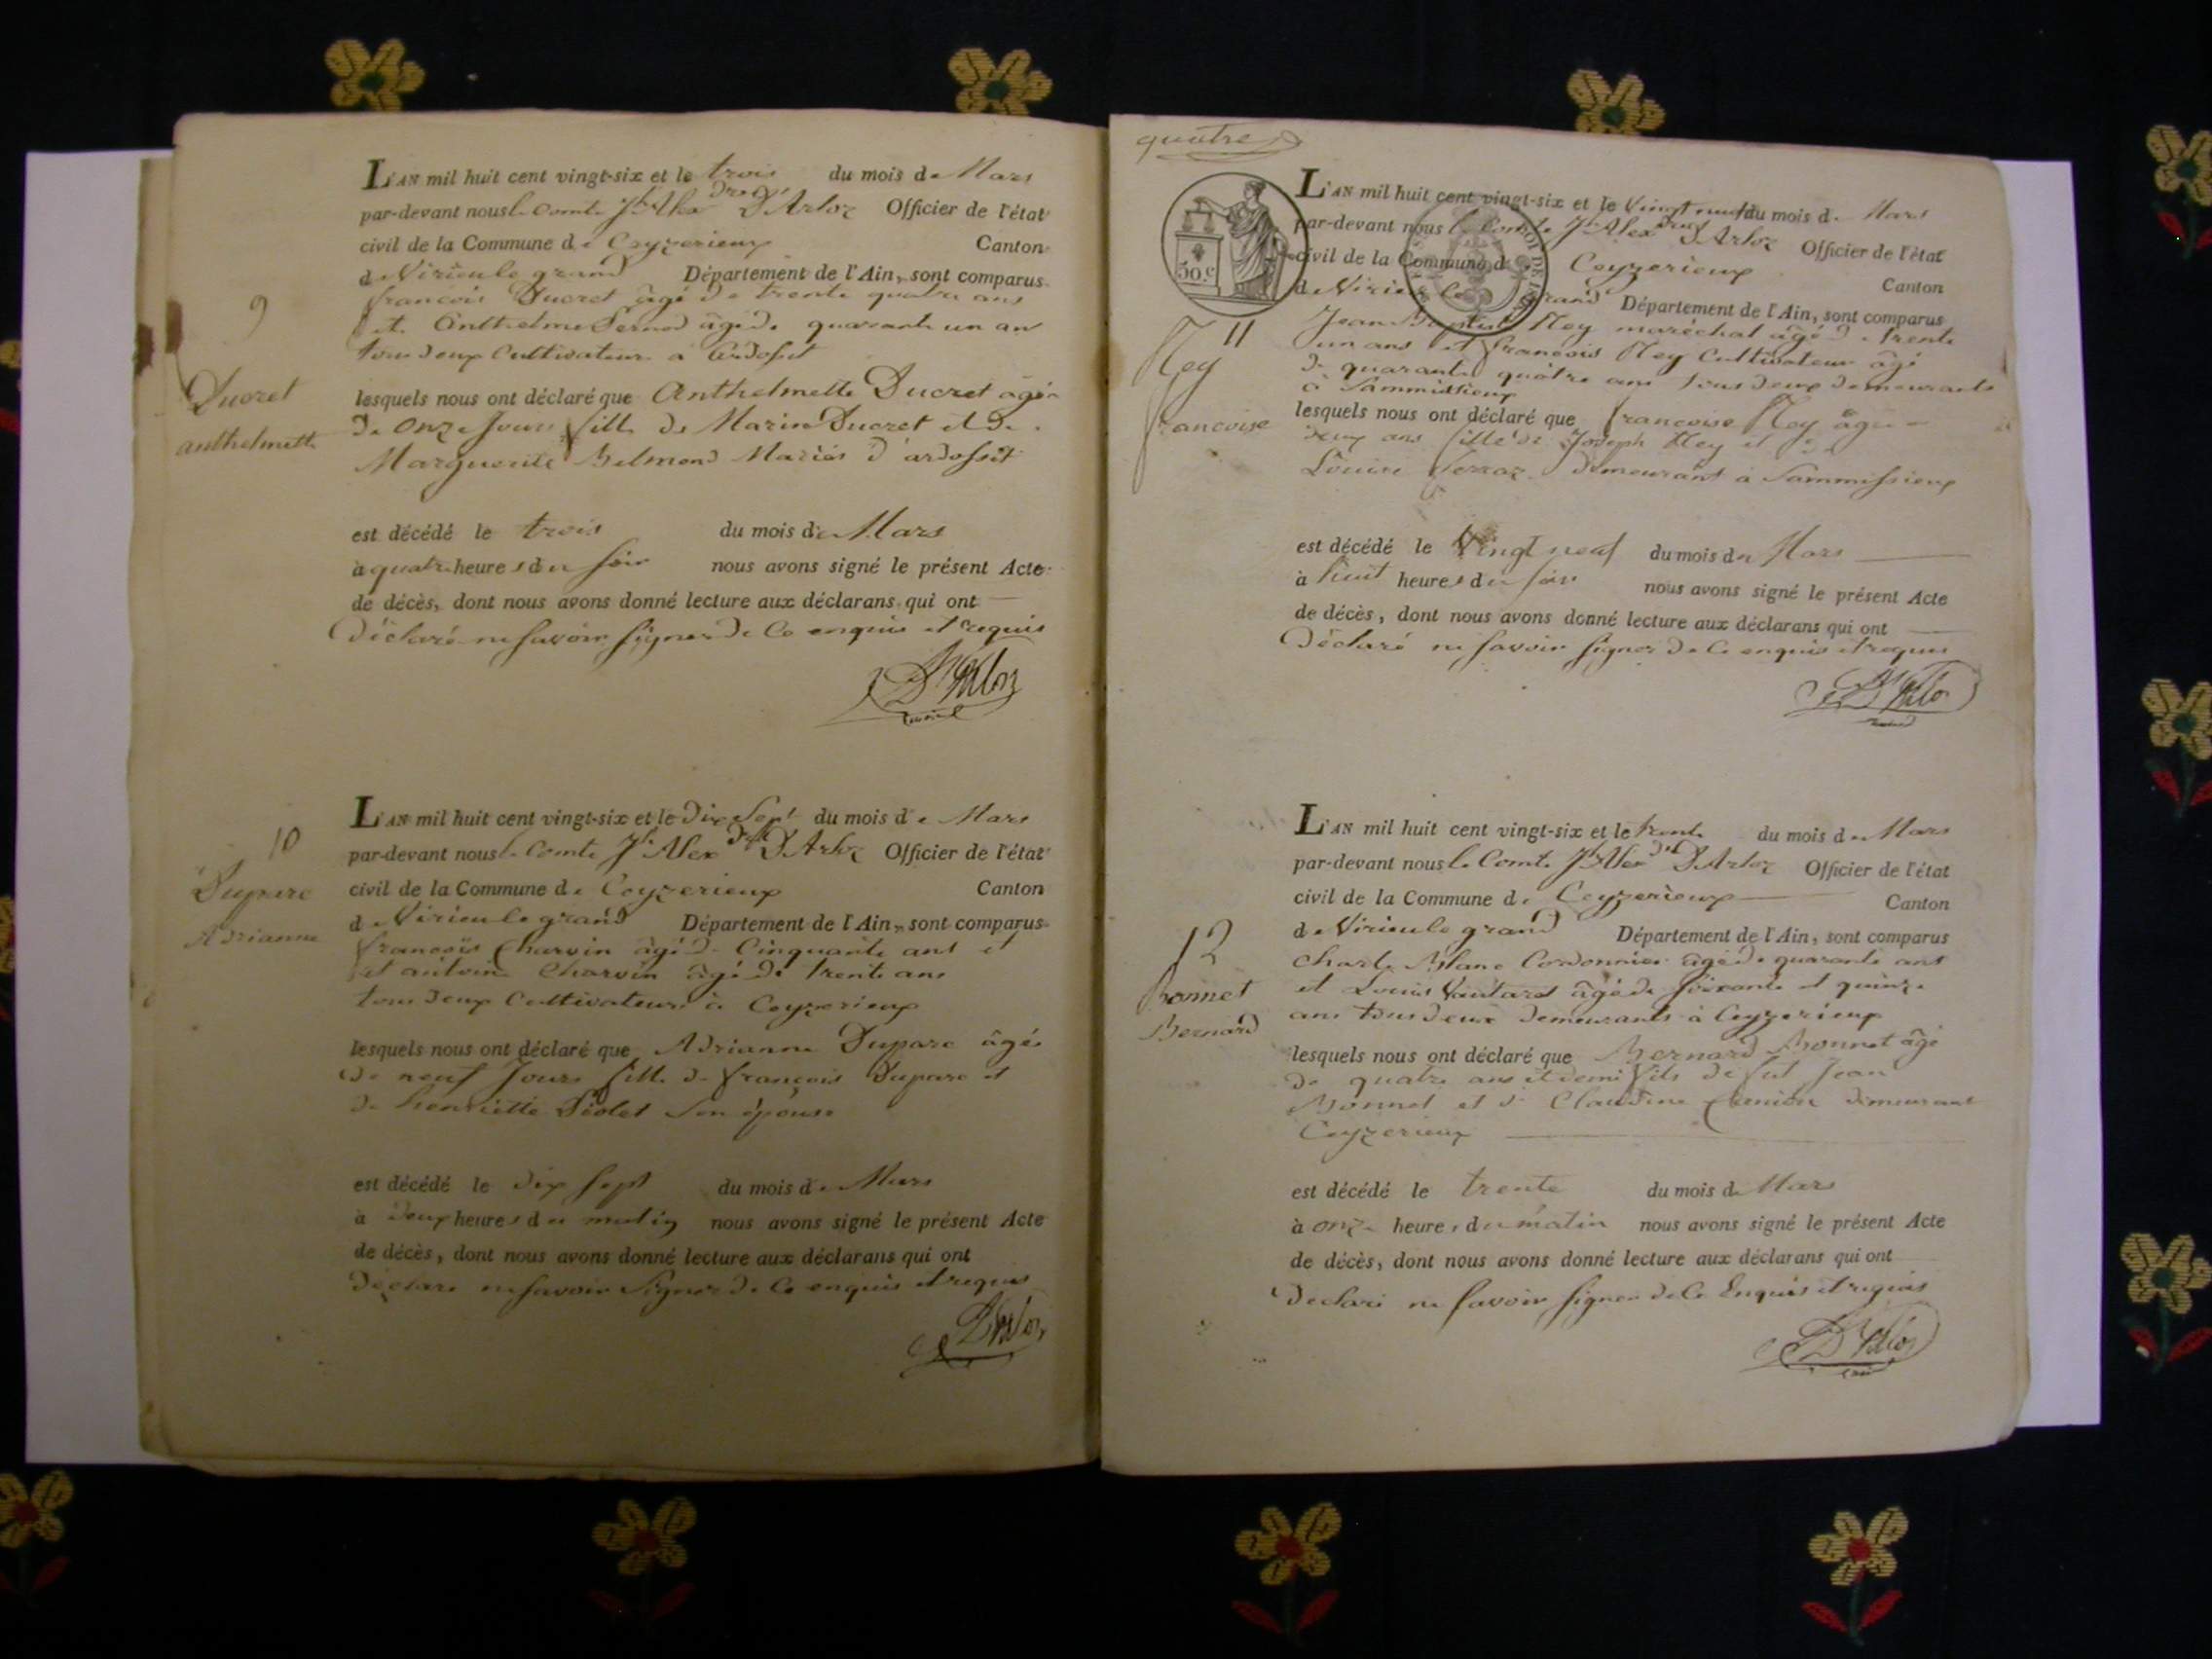 9
Ducret
anthelmette
L'AN mil huit cent vingt-six et le trois du mois de Mars
par-devant nous le Comte Jh Alexdre D'Arloz Officier de l'état
civil de la Commune de Ceyzerieux Canton
de Virieu le grand Département de l'Ain, sont comparus
françois Ducret âgé de trente quatre ans
et Anthelme Pernod âgé de quarante un an
tous deux Cultivateurs à Ardosset
lesquels nous ont déclaré que Anthelmette Ducret agée
de onze Jours fille de Marin Ducret et de
Marguerite Belmond Mariés d'ardosset
est décédé le trois du mois de Mars
à quatre heures du soir nous avons signé le présent Acte
de décès, dont nous avons donné lecture aux déclarans qui ont
Déclaré ne savoir signer de ce enquis et requis
10
Duparc
Adrianne
L'AN mil huit cent vingt-six et le Dix Sept du mois de Mars
par-devant nous le Comte Jh Alexdre D'Arloz Officier de l'état
civil de la Commune de Ceyzerieux Canton
de Virieu le grand Département de l'Ain, sont comparus
françois Charvin âgé de Cinquante ans et
et antoine Charvin âgé de trente ans
tous deux Cultivateurs à Ceyzerieux
lesquels nous ont déclaré que Adrianne Duparc âgée
de neuf Jours fille de françois Duparc et
de henriette Diolet son épouse
est décédé le dix sept du mois de Mars
à deux heures du matin nous avons signé le présent Acte
de décès, dont nous avons donné lecture aux déclarans qui ont
Déclaré ne savoir signer de ce enquis et requis
quatre
50 c
11
Rey
francoise
L'AN mil huit cent vingt-six et le vingt neuf du mois de Mars
par-devant nous le Comte Jh Alexdre D'Arloz Officier de l'état
civil de la Commune de Ceyzerieux Canton
de Virieu le grand Département de l'Ain, sont comparus
Jean Baptiste Rey maréchal âgé de trente
un ans et françois Rey Cultivateur âgé
de quarante quatre ans tous deux demeurants
à Sammissieux
lesquels nous ont déclaré que françoise Rey âgée
deux ans fille de Joseph Rey et de
Louise demeurant à Sammissieux
est décédé le Vingt neuf du mois de Mars
à huit heures du soir nous avons signé le présent Acte
de décès, dont nous avons donné lecture aux déclarans qui ont
Déclaré ne savoir signer de ce enquis et requis
12
Bonnet
Bernard
L'AN mil huit cent vingt-six et le trente du mois de Mars
par-devant nous le Comte Jh Alexdre D'Arloz Officier de l'état
civil de la Commune de Ceyzerieux Canton
de Virieu le grand Département de l'Ain, sont comparus
Charle Blanc Cordonnier âgé de quarante ans
et Louis Vautaret âgé de soixante et quinze
ans tous deux demeurants à Ceyzerieux
lesquels nous ont déclaré que Bernard Bonnet âgé
de quatre ans et demi fils de fut Jean
Bonnet et de Claudine demeurant
Ceyzerieux
est décédé le trente du mois de Mars
à onze heures du matin nous avons signé le présent Acte
de décès, dont nous avons donné lecture aux déclarans qui ont
Déclaré ne savoir signer de ce Enquis et requis